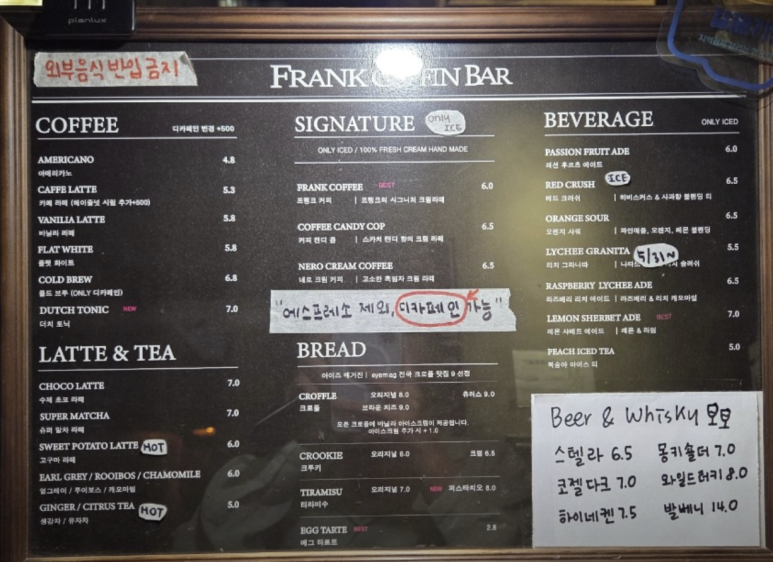 planlux
외부음식 반입 금지
FRANK COFFIN BAR
COFFEE 디카페인 변경 +500
AMERICANO 4.8
아메리카노
CAFFE LATTE 5.3
카페 라떼 (헤이즐넛 시럽 추가+500)
VANILLA LATTE 5.8
바닐라 라떼
FLAT WHITE 5.8
플랫 화이트
COLD BREW 6.8
콜드 브루 (ONLY 디카페인)
DUTCH TONIC NEW 7.0
더치 토닉
LATTE & TEA
CHOCO LATTE 7.0
수제 초코 라떼
SUPER MATCHA 7.0
슈퍼 말차 라떼
SWEET POTATO LATTE HOT 6.0
고구마 라떼
EARL GREY / ROOIBOS / CHAMOMILE 6.0
얼그레이 / 루이보스 / 캐모마일
GINGER / CITRUS TEA HOT 5.0
생강차 / 유자차
SIGNATURE only ICE
ONLY ICED / 100% FRESH CREAM HAND MADE
FRANK COFFEE BEST 6.0
프랭크 커피 | 프랭크의 시그니처 크림라떼
COFFEE CANDY COP 6.5
커피 캔디 콥 | 스카치 캔디 향의 크림 라떼
NERO CREAM COFFEE 6.5
네로 크림 커피 | 고소한 흑임자 크림 라떼
"에스프레소 제외, 디카페인 가능"
BREAD
아이즈 매거진 | eyemag 전국 크로플 맛집 9 선정
CROFFLE 오리지널 8.0 츄러스 9.0
크로플 브라운 치즈 9.0
모든 크로플에 바닐라 아이스크림이 제공됩니다.
아이스크림 추가 시 +1.0
CROOKIE 오리지널 6.0 크림 6.5
크루키
TIRAMISU 오리지널 7.0 NEW 피스타치오 8.0
티라미수
EGG TARTE BEST 2.8
에그 타르트
BEVERAGE ONLY ICED
PASSION FRUIT ADE 6.0
패션 후르츠 에이드
RED CRUSH ICE 6.5
레드 크러쉬 | 히비스커스 & 사과향 블렌딩 티
ORANGE SOUR 6.5
오렌지 사워 | 파인애플, 오렌지, 레몬 블렌딩
LYCHEE GRANITA 5/31~ 5.5
리치 그라니따 | 슬러쉬
RASPBERRY LYCHEE ADE 6.5
라즈베리 리치 에이드 | 라즈베리 & 리치 캐모마일
LEMON SHERBET ADE BEST 7.0
레몬 샤베트 에이드 | 레몬 & 라임
PEACH ICED TEA 5.0
복숭아 아이스 티
Beer & Whisky
스텔라 6.5 몽키숄더 7.0
코젤다크 7.0 와일드터키 8.0
하이네켄 7.5 발베니 14.0